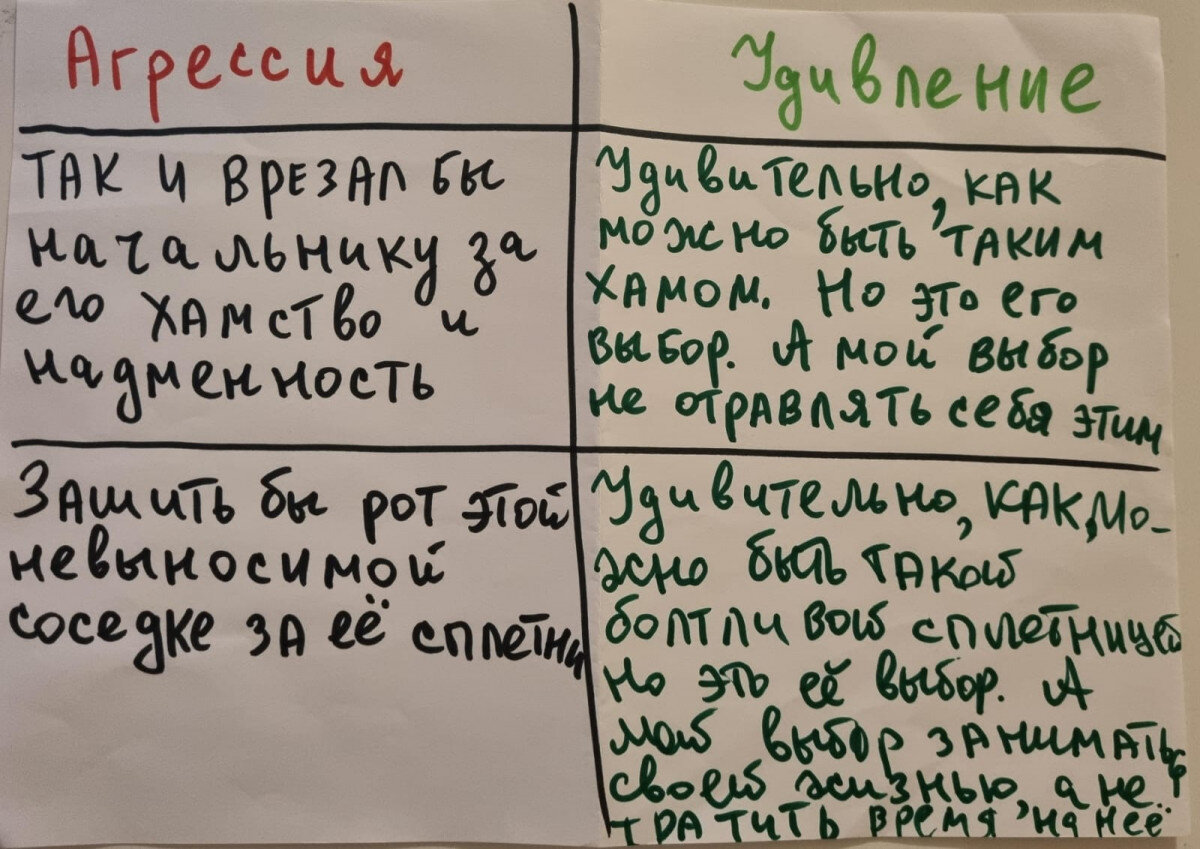 Агрессия
Удивление
ТАК И ВРЕЗАЛ бы
начальнику за
его ХАМСТВО и
надменность
Удивительно, КАК
можно быть ТАКИМ
ХАМОМ. Но это его
выбор. А мой выбор
не отравлять себя этим
Зашить бы рот этой
невыносимой
соседке ЗА её сплетни
Удивительно, КАК, мо-
жно быть такой
болтливой сплетницей
Но это её выбор. А
мой выбор заниматься
своей жизнью, а не
тратить время на неё